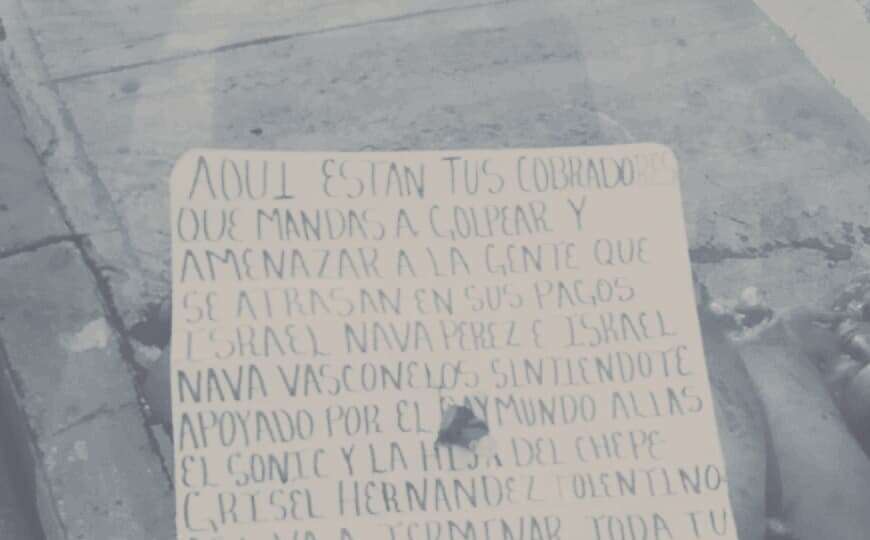 AQUI ESTAN TUS COBRADORES
QUE MANDAS A GOLPEAR Y
AMENAZAR A LA GENTE QUE
SE ATRASAN EN SUS PAGOS
ISRAEL NAVA PEREZ E ISRAEL
NAVA VASCONELOS SINTIENDOTE
APOYADO POR EL RAYMUNDO ALIAS
EL SONIC Y LA HIJA DEL CHEPE
GRISEL HERNANDEZ TOLENTINO
VA A TERMINAR TODA TU